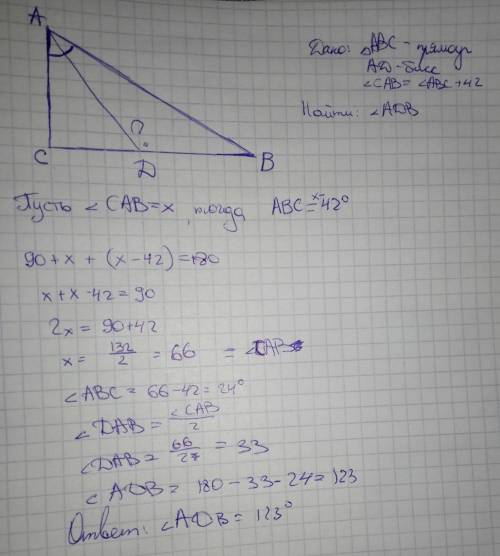 A
C
D
B
Дано: △ABC - прямоуг
AD - бисс
∠CAB = ∠ABC + 42
Найти: ∠ADB
Пусть ∠CAB = x, тогда ABC = x - 42°
90 + x + (x - 42) = 180
x + x - 42 = 90
2x = 90 + 42
x = 132/2 = 66 = ∠CAB
∠ABC = 66 - 42 = 24°
∠DAB = ∠CAB/2
∠DAB = 66/2 = 33
∠ADB = 180 - 33 - 24 = 123
Ответ: ∠ADB = 123°